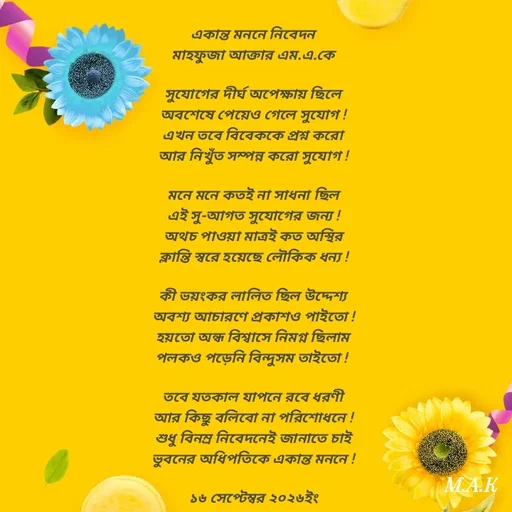 একান্ত মননে নিবেদন
মাহফুজা আক্তার এম.এ.কে
সুযোগের দীর্ঘ অপেক্ষায় ছিলে
অবশেষে পেয়েও গেলে সুযোগ !
এখন তবে বিবেককে প্রশ্ন করো
আর নিখুঁত সম্পন্ন করো সুযোগ !
মনে মনে কতই না সাধনা ছিল
এই সু-আগত সুযোগের জন্য !
অথচ পাওয়া মাত্রই কত অস্থির
ক্লান্তি স্বরে হয়েছে লৌকিক ধন্য !
কী ভয়ংকর লালিত ছিল উদ্দেশ্য
অবশ্য আচারণে প্রকাশও পাইতো !
হয়তো অন্ধ বিশ্বাসে নিমগ্ন ছিলাম
পলকও পড়েনি বিন্দুসম তাইতো !
তবে যতকাল যাপনে রবে ধরণী
আর কিছু বলিবো না পরিশোধনে !
শুধু বিনম্র নিবেদনেই জানাতে চাই
ভুবনের অধিপতিকে একান্ত মননে !
১৬ সেপ্টেম্বর ২০২৬ইং
M.A.K